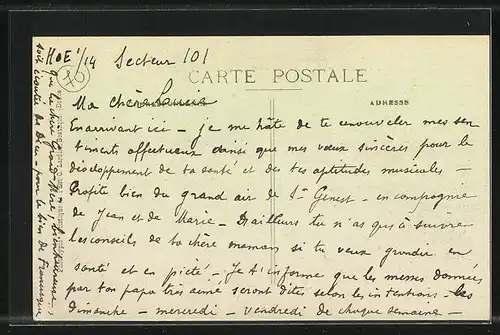 HOE 1/14 Secteur 101
CARTE POSTALE
ADRESSE
Ma chère Louise
En arrivant ici - je me hâte de te renouveler mes sen
timents affectueux ainsi que mes vœux sincères pour le
développement de ta santé et des tes aptitudes musicales -
Profite bien du grand air de St Genest - en compagnie
de Jean et de Marie - D'ailleurs tu n'as qu'à suivre
les conseils de ta chère maman si tu veux grandir en
santé et en piété - Je t'informe que les messes données
par ton papa très aimé seront dites selon les intentions - les
dimanche - mercredi - vendredi de chaque semaine -
que ta chère Grand-Mère, bienheureuse,
soit écoutée de Dieu - pour le bien de